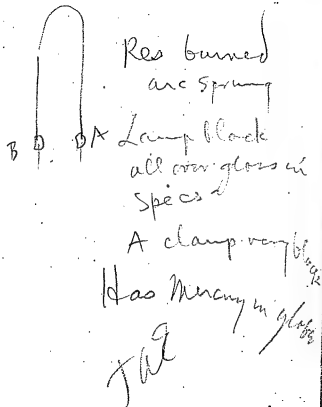 Res burned
arc sprung
B A Lamp black
all over glass in
specs
A clamp very black
Has Mercury in globe
TAE